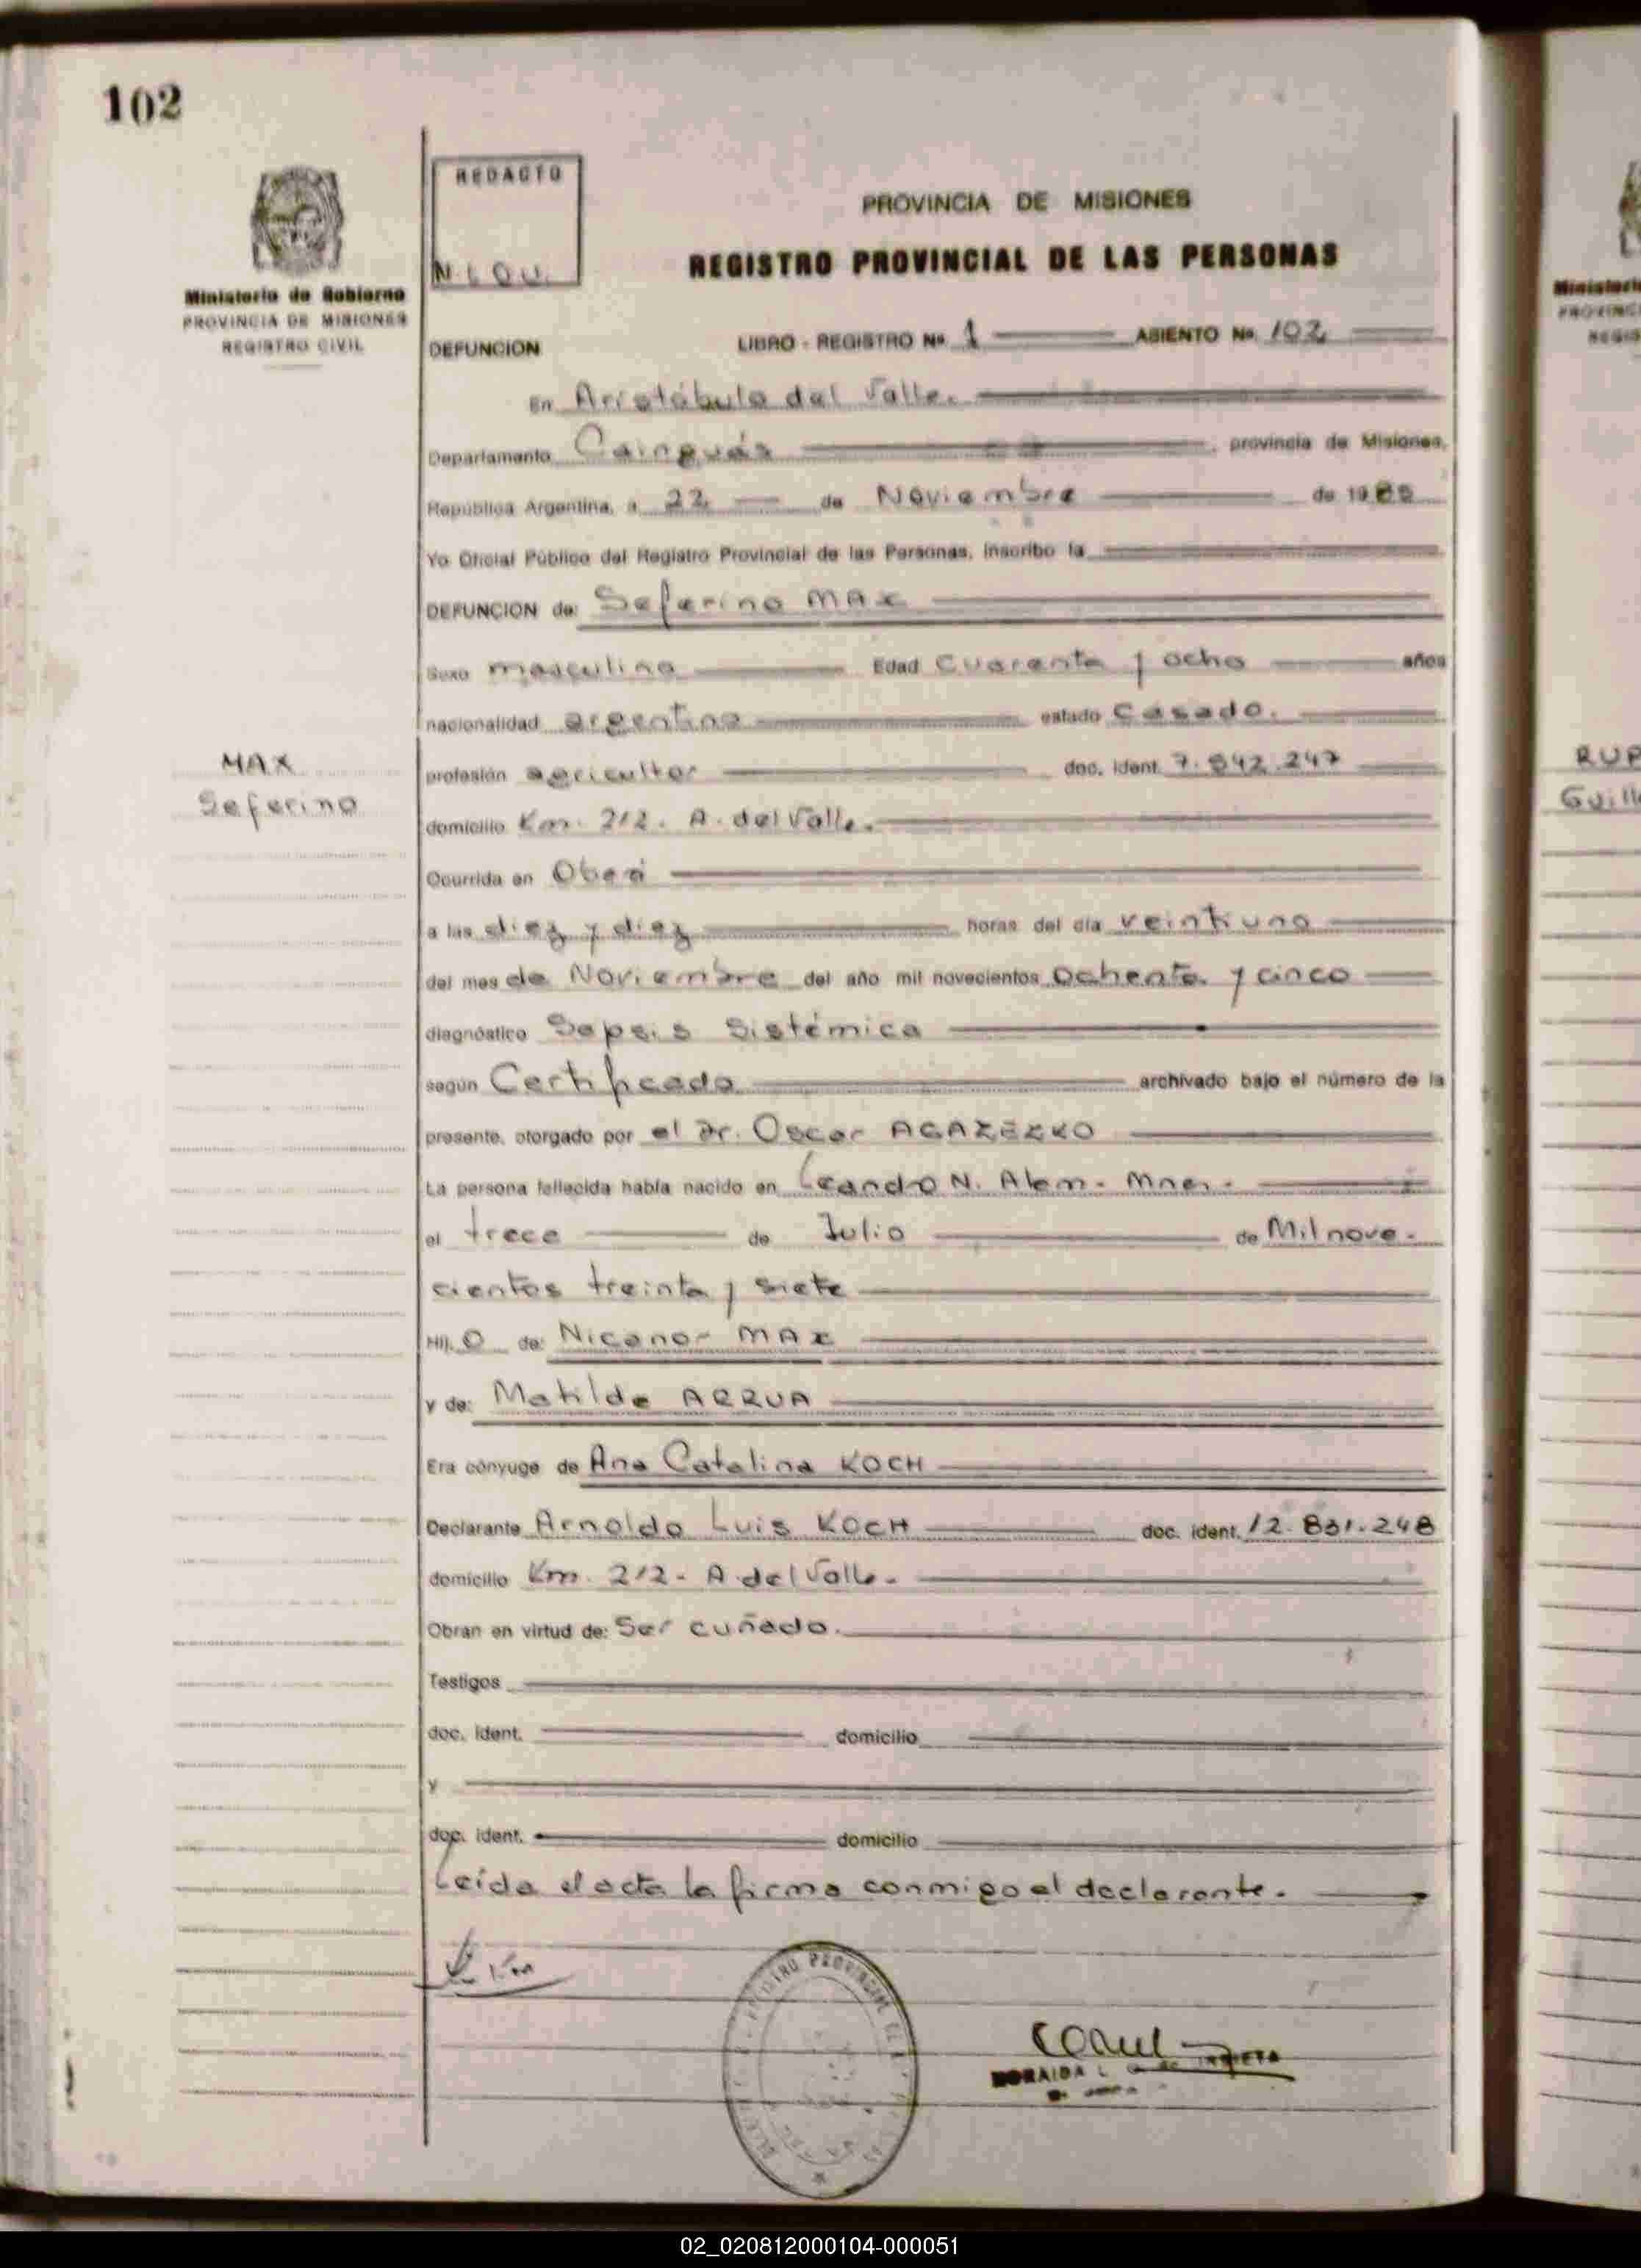 102
REDACTO
Ministerio de Gobierno
PROVINCIA DE MISIONES
REGISTRO CIVIL
PROVINCIA DE MISIONES
REGISTRO PROVINCIAL DE LAS PERSONAS
DEFUNCION LIBRO - REGISTRO Nº 1 ASIENTO Nº 102
En Aristóbulo del Valle.
Departamento Cainguás, provincia de Misiones,
República Argentina, a 22 de Noviembre de 1985
Yo Oficial Público del Registro Provincial de las Personas, inscribo la
DEFUNCION de: Seferino MAX
Sexo masculino Edad Cuarenta y ocho años
nacionalidad argentina estado Casado.
profesión agricultor doc. ident. 7.842.247
domicilio Km. 212. A. del Valle.
Ocurrida en Oberá
a las diez y diez horas del día veintiuno
del mes de Noviembre del año mil novecientos Ochenta y cinco
diagnóstico Sepsis Sistémica
según Certificado archivado bajo el número de la
presente, otorgado por el Dr. Oscar
La persona fallecida había nacido en Leandro N. Alem. Mnes.
el trece de Julio de Mil nove-
cientos treinta y siete
Hij o de: Nicanor MAX
y de: Matilde ARRUA
Era cónyuge de Ana Catalina KOCH
Declarante Arnoldo Luis KOCH doc. ident. 12.831.248
domicilio Km. 212- A del Valle.
Obran en virtud de: Ser cuñado.
Testigos
doc. ident. domicilio
y
doc. ident. domicilio
Leída el acta la firma conmigo el declarante.
MAX
Seferino
RUP
Guill
02_020812000104-000051